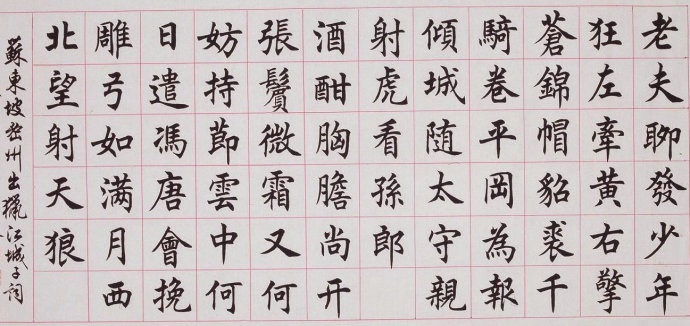 老夫聊發少年
狂左牽黄右擎
蒼錦帽貂裘千
騎卷平岡為報
傾城随太守親
射虎看孫郎
酒酣胸膽尚开
張鬢微霜又何
妨持節雲中何
日遣馮唐會挽
雕弓如满月西
北望射天狼
蘇東坡密州出獵江城子詞